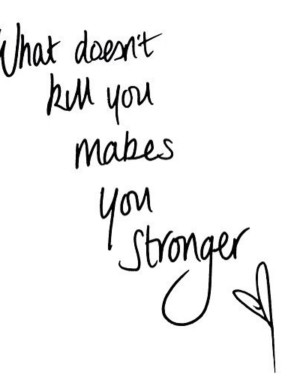 What doesn't
kill you
makes
you
stronger